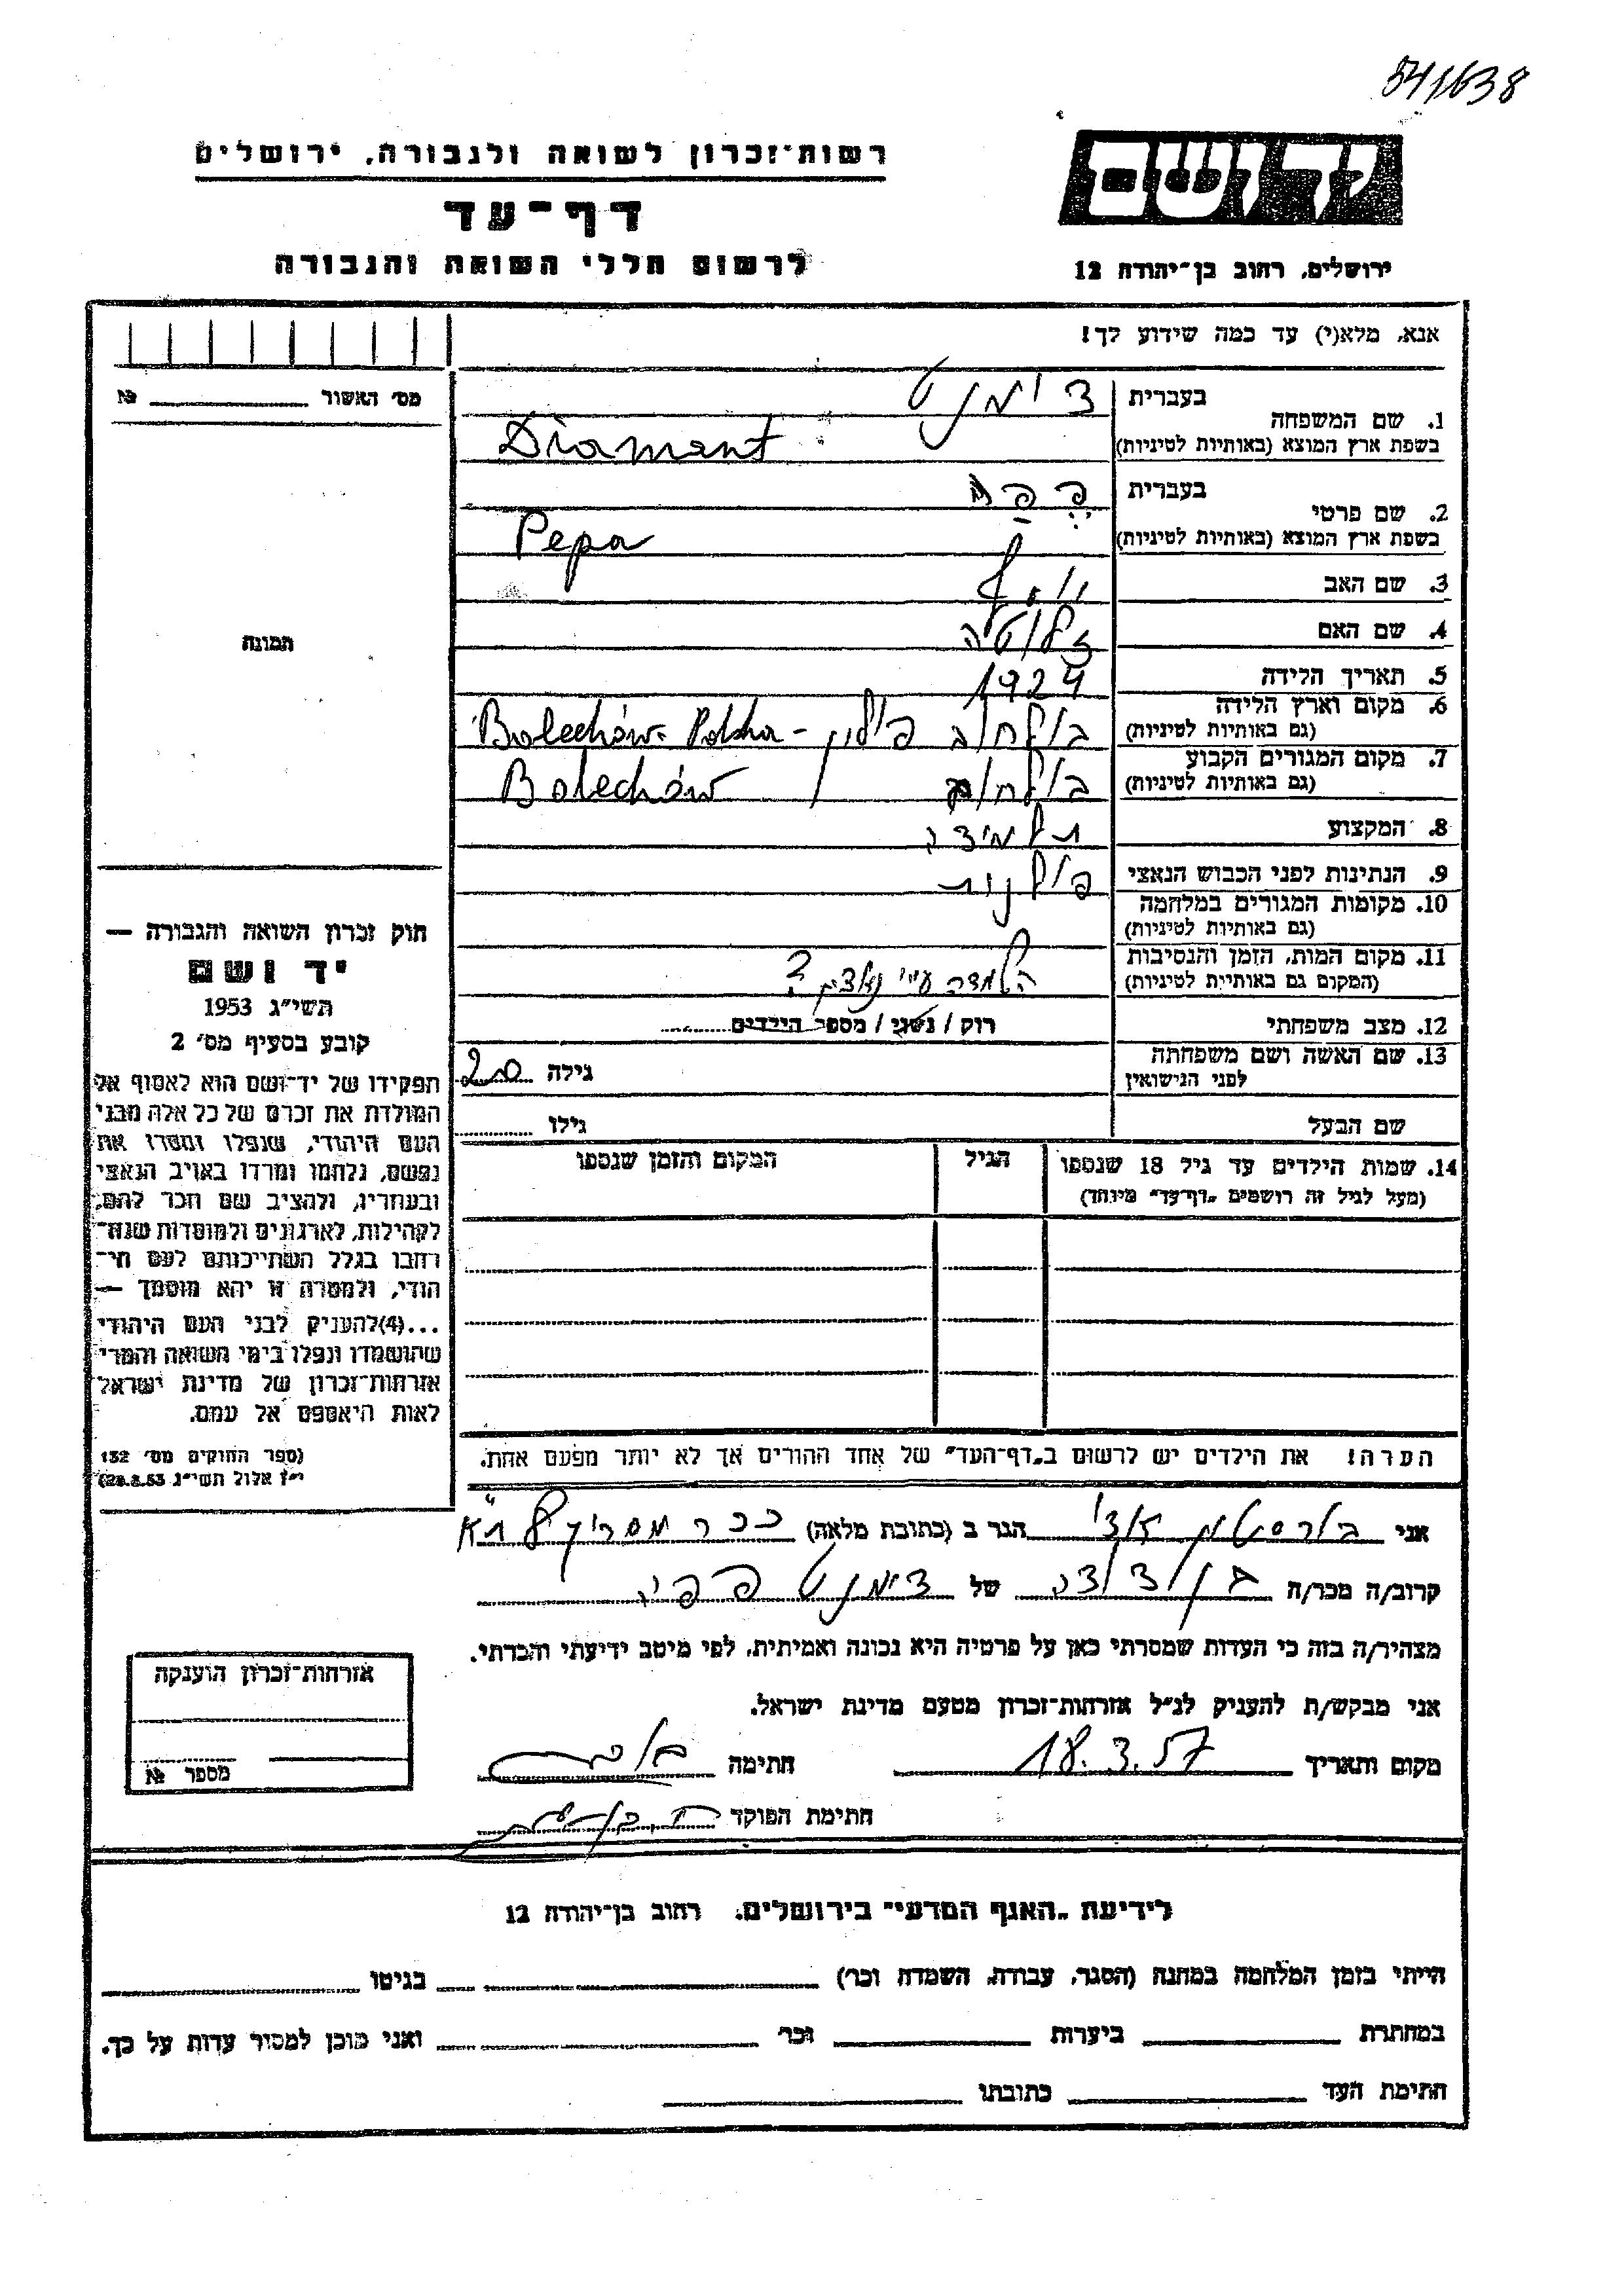 541638
רשות־זכרון לשואה ולגבורה, ירושלים
יד ושם
דף־עד
לרשום חללי השואה והגבורה
ירושלים, רחוב בן־יהודה 12
אנא, מלא(י) עד כמה שידוע לך!
מס׳ האשור № 
1. שם המשפחה
בעברית דימנט
בשפת ארץ המוצא (באותיות לטיניות) Diamant
2. שם פרטי
בעברית פֶּפַּה
בשפת ארץ המוצא (באותיות לטיניות) Pepa
3. שם האב יוסף
4. שם האם
5. תאריך הלידה 1924
6. מקום וארץ הלידה (גם באותיות לטיניות) בולחוב פולין - Bolechów - Polska
7. מקום המגורים הקבוע (גם באותיות לטיניות) בולחוב / Bolechów
8. המקצוע תלמידה
9. הנתינות לפני הכבוש הנאצי פולנית
10. מקומות המגורים במלחמה (גם באותיות לטיניות)
11. מקום המות, הזמן והנסיבות (המקום גם באותיות לטיניות) הושמדה ע״י נאצים ?
12. מצב משפחתי רוק / נשוי / מספר הילדים
13. שם האשה ושם משפחתה לפני הנישואין גילה 20
שם הבעל גילו
14. שמות הילדים עד גיל 18 שנספו
(מעל לגיל זה רושמים „דף־עד״ מיוחד)
הגיל
המקום והזמן שנספו
הערה! את הילדים יש לרשום ב„דף־העד״ של אחד ההורים אך לא יותר מפעם אחת.
תמונה
חוק זכרון השואה והגבורה —
יד ושם
תשי״ג 1953
קובע בסעיף מס׳ 2
תפקידו של יד־ושם הוא לאסוף אל
המולדת את זכרם של כל אלה מבני
העם היהודי, שנפלו ומסרו את
נפשם, נלחמו ומרדו באויב הנאצי
ובעוזריו, ולהציב שם וזכר להם,
לקהילות, לארגונים ולמוסדות שנח־
רבו בגלל השתייכותם לעם הי־
הודי, ולמטרה זו יהא מוסמך —
...(4)להעניק לבני העם היהודי
שהושמדו ונפלו בימי השואה והמרי
אזרחות־זכרון של מדינת ישראל
לאות היאספם אל עמם.
(ספר החוקים מס׳ 132
י״ז אלול תשי״ג 28.8.53)
אני הגר ב (כתובת מלאה) ככר מסריק 8 ת״א
קרוב/ה מכר/ה בן דודה של דימנט פפה
מצהיר/ה בזה כי העדות שמסרתי כאן על פרטיה היא נכונה ואמיתית, לפי מיטב ידיעתי והכרתי.
אני מבקש/ת להעניק לנ״ל אזרחות־זכרון מטעם מדינת ישראל.
מקום ותאריך 18.3.57 חתימה
חתימת הפוקד
אזרחות־זכרון הוענקה
מספר №
לידיעת „האגף המדעי״ בירושלים, רחוב בן־יהודה 12
הייתי בזמן המלחמה במחנה (הסגר, עבודה, השמדה וכו׳) בגיטו
במחתרת ביערות וכו׳ ואני מוכן למסור עדות על כך.
חתימת העד כתובתו